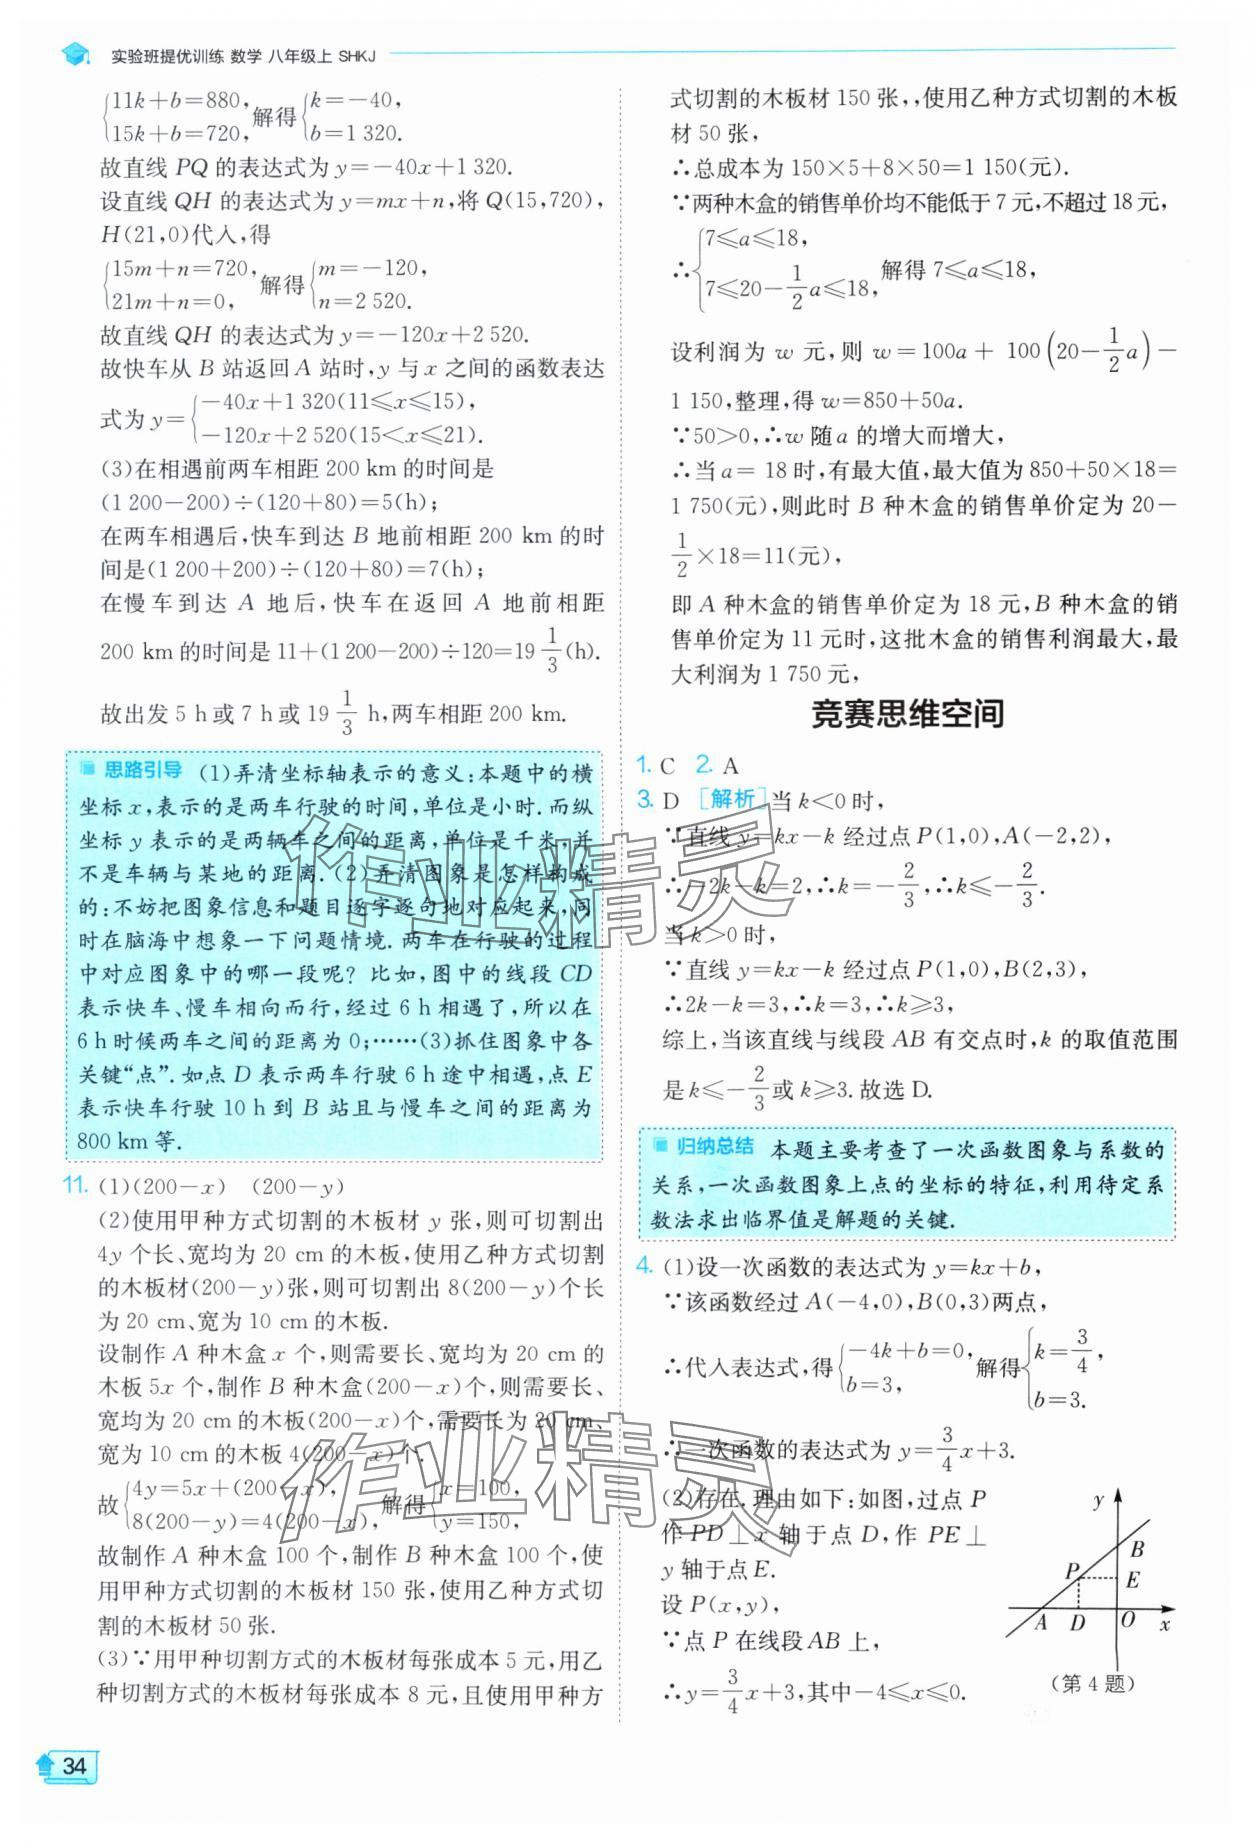 实验班提优训练 数学 八年级上 SHKJ
{11k+b=880, 15k+b=720, 解得{k=-40, b=1 320.
故直线 PQ 的表达式为 y=-40x+1 320.
设直线 QH 的表达式为 y=mx+n,将 Q(15,720),
H(21,0)代入,得
{15m+n=720, 21m+n=0, 解得{m=-120, n=2 520.
故直线 QH 的表达式为 y=-120x+2 520.
故快车从 B 站返回 A 站时,y 与 x 之间的函数表达
式为 y={-40x+1 320(11≤x≤15), -120x+2 520(15<x≤21).
(3)在相遇前两车相距 200 km 的时间是
(1 200-200)÷(120+80)=5(h);
在两车相遇后,快车到达 B 地前相距 200 km 的时
间是(1 200+200)÷(120+80)=7(h);
在慢车到达 A 地后,快车在返回 A 地前相距
200 km 的时间是 11+(1 200-200)÷120=19 1/3(h).
故出发 5 h 或 7 h 或 19 1/3 h,两车相距 200 km.
思路引导 (1)弄清坐标轴表示的意义:本题中的横
坐标 x,表示的是两车行驶的时间,单位是小时.而纵
坐标 y 表示的是两辆车之间的距离,单位是千米,并
不是车辆与某地的距离.(2)弄清图象是怎样构成
的:不妨把图象信息和题目逐字逐句地对应起来,同
时在脑海中想象一下问题情境.两车在行驶的过程
中对应图象中的哪一段呢? 比如,图中的线段 CD
表示快车、慢车相向而行,经过 6 h 相遇了,所以在
6 h 时候两车之间的距离为 0;……(3)抓住图象中各
关键“点”.如点 D 表示两车行驶 6 h 途中相遇,点 E
表示快车行驶 10 h 到 B 站且与慢车之间的距离为
800 km 等.
11. (1)(200-x) (200-y)
(2)使用甲种方式切割的木板材 y 张,则可切割出
4y 个长、宽均为 20 cm 的木板,使用乙种方式切割
的木板材(200-y)张,则可切割出 8(200-y)个长
为 20 cm、宽为 10 cm 的木板.
设制作 A 种木盒 x 个,则需要长、宽均为 20 cm 的
木板 5x 个,制作 B 种木盒(200-x)个,则需要长、
宽均为 20 cm 的木板(200-x)个,需要长为 20 cm、
宽为 10 cm 的木板 4(200-x)个.
故{4y=5x+(200-x), 8(200-y)=4(200-x), 解得{x=100, y=150,
故制作 A 种木盒 100 个,制作 B 种木盒 100 个,使
用甲种方式切割的木板材 150 张,使用乙种方式切
割的木板材 50 张.
(3)∵用甲种切割方式的木板材每张成本 5 元,用乙
种切割方式的木板材每张成本 8 元,且使用甲种方
34
式切割的木板材 150 张,,使用乙种方式切割的木板
材 50 张,
∴总成本为 150×5+8×50=1 150(元).
∵两种木盒的销售单价均不能低于 7 元,不超过 18 元,
∴{7≤a≤18, 7≤20-1/2a≤18, 解得 7≤a≤18,
设利润为 w 元,则 w=100a+100(20-1/2a)-
1 150,整理,得 w=850+50a.
∵50>0,∴w 随 a 的增大而增大,
∴当 a=18 时,有最大值,最大值为 850+50×18=
1 750(元),则此时 B 种木盒的销售单价定为 20-
1/2×18=11(元),
即 A 种木盒的销售单价定为 18 元,B 种木盒的销
售单价定为 11 元时,这批木盒的销售利润最大,最
大利润为 1 750 元,
竞赛思维空间
1. C 2. A
3. D [解析]当 k<0 时,
∵直线 y=kx-k 经过点 P(1,0),A(-2,2),
∴-2k-k=2,∴k=-2/3,∴k≤-2/3.
当 k>0 时,
∵直线 y=kx-k 经过点 P(1,0),B(2,3),
∴2k-k=3,∴k=3,∴k≥3,
综上,当该直线与线段 AB 有交点时,k 的取值范围
是 k≤-2/3或 k≥3.故选 D.
归纳总结 本题主要考查了一次函数图象与系数的
关系,一次函数图象上点的坐标的特征,利用待定系
数法求出临界值是解题的关键.
4. (1)设一次函数的表达式为 y=kx+b,
∵该函数经过 A(-4,0),B(0,3)两点,
∴代入表达式,得{-4k+b=0, b=3, 解得{k=3/4, b=3.
∴一次函数的表达式为 y=3/4x+3.
(2)存在.理由如下:如图,过点 P
作 PD⊥x 轴于点 D,作 PE⊥
y 轴于点 E.
设 P(x,y),
∵点 P 在线段 AB 上,
∴y=3/4x+3,其中-4≤x≤0.
y
B
P
E
A D O x
(第 4 题)
作业精灵
作业精灵